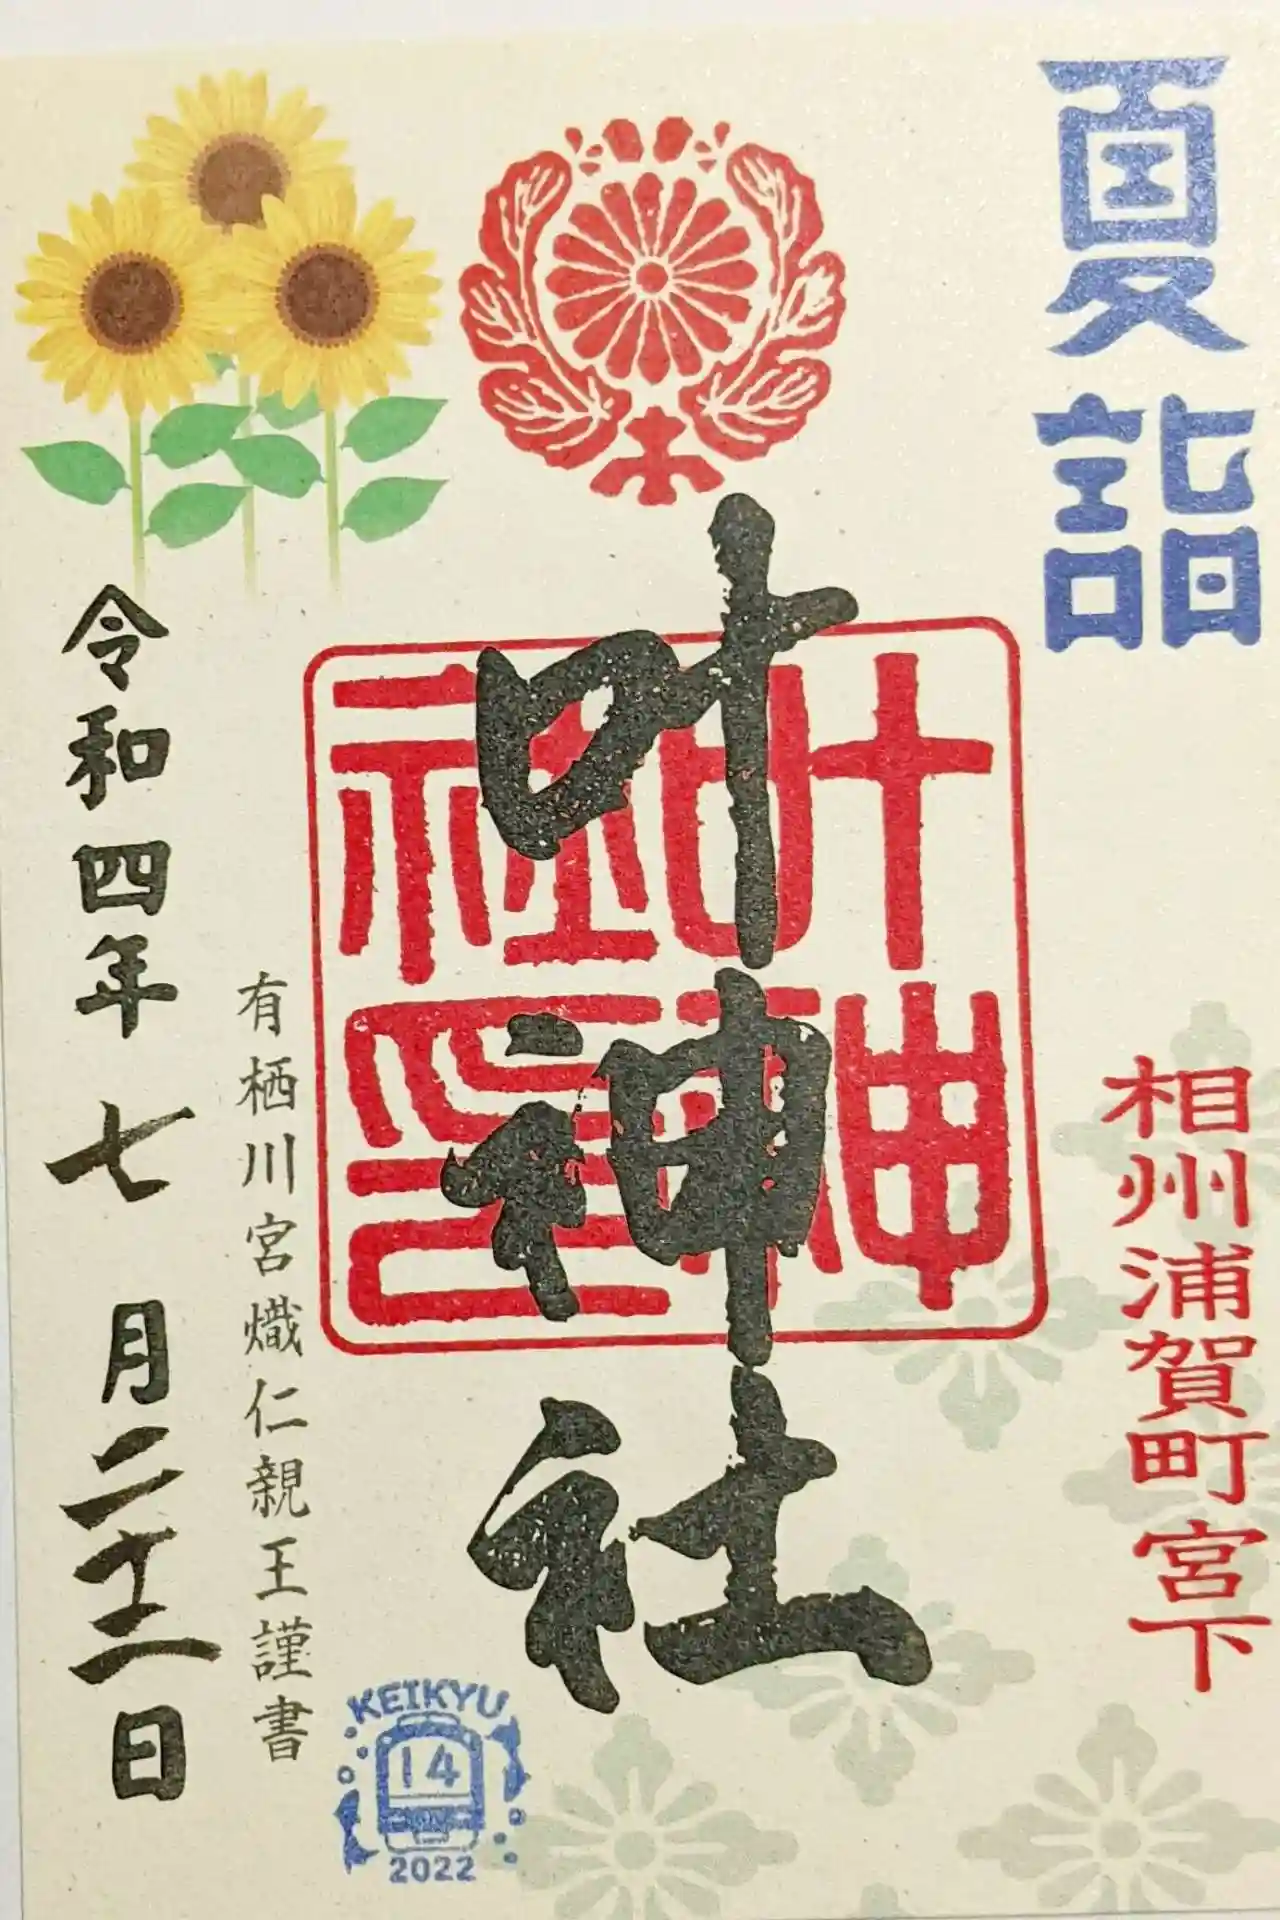 夏詣
相州浦賀町宮下
叶神社
叶神
社印
有栖川宮熾仁親王謹書
令和四年七月二十二日
KEIKYU
14
2022